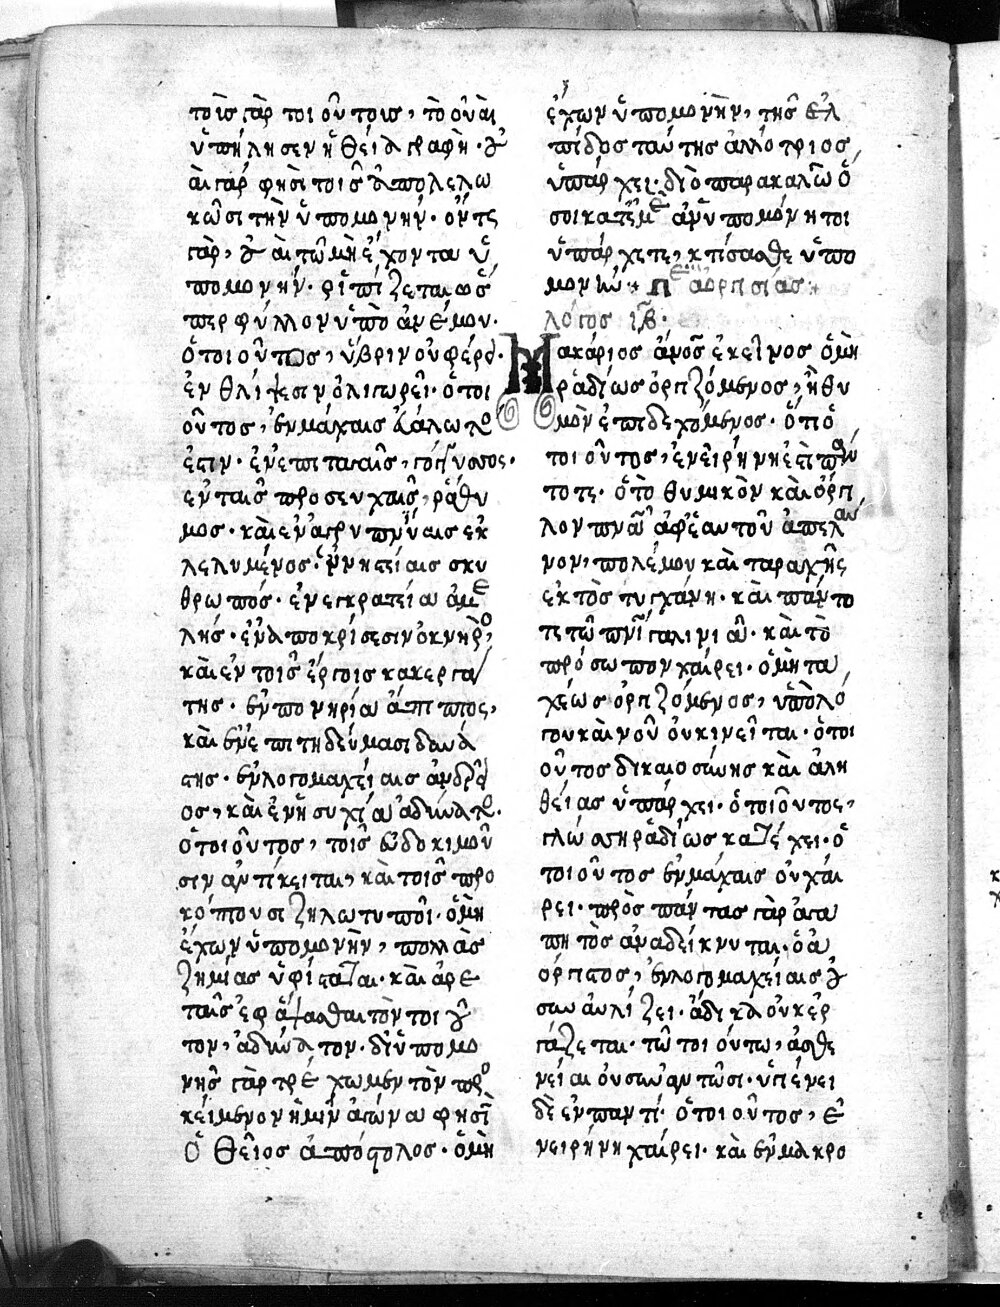 τοῖς γὰρ τοιούτοις, τὸ οὐαὶ
ἠπείλησεν ἡ θεία γραφή· οὐ
αὶ γάρ φησι τοῖς ἀπολελω
κῶσι τὴν ὑπομονήν· ὄντως
γὰρ, οὐαὶ τῶ μὴ ἔχοντα ὑ
πομονήν· ῥιπίζεται ὡς
περ φύλλον ὑπὸ ἀνέμου·
ὁ τοιοῦτος, ὕβριν οὐ φέρει·
ἐν θλίψεσιν ὀλιγωρεῖ· ὁ τοι
οῦτος, ἐν μάχαις
ἐστιν· ἐν
ἐν ταῖς προσευχαῖς, ῥάθυ
μος· καὶ ἐν ἀγρυπνίαις ἐκ
λελυμένος· ἐν νηστείαις σκυ
θρωπός· ἐν ἐγκρατεία ἀμε
λής· ἐν ἀποκρίσεσιν ὀκνηρὸς,
καὶ ἐν τοῖς ἔργοις κακεργά
της· ἐν πονηρία ἀήττητος,
καὶ ἐν ἐπιτηδεύμασι
της· ἐν λογομαχείαις ἀνδρεῖ
ος, καὶ ἐν ἡσυχία ἀδύνατος·
ὁ τοιοῦτος, τοῖς εὐδοκιμοῦ
σιν ἀντίκειται, καὶ τοῖς προ
κόπτουσι ζηλωτυπεῖ· ὁ μὴ
ἔχων ὑπομονὴν, πολλὰς
ζημίας ὑφίσταται· καὶ ἀρε
ταῖς ἐφάψασθαι τὸν τοιοῦ
τον, ἀδύνατον· δι' ὑπομο
νῆς γὰρ τρέχωμεν τὸν προ
κείμενον ἡμῖν ἀγώνα φησὶν
ὁ θεῖος ἀπόστολος· ὁ μὴ
ἔχων ὑπομονὴν, τῆς ἐλ
πίδος ταύτης ἀλλότριος
ὑπάρχει· διὸ παρακαλῶ ὅ
σοι κατ' ἐμὲ ἀνυπομόνητοι
ὑπάρχετε, κτίσασθε ὑπο
μονήν· Περὶ ἀοργησίας·
λόγος ιβ·
Μακάριος ἄνος ἐκεῖνος ὁ μὴ
ῥαδίως ὀργιζόμενος, ἢ θυ
μὸν ἐπιδεχόμενος· ὅτι ὁ
τοιοῦτος, ἐν εἰρήνη ἐστὶ πάν
τοτε· ὁ τὸ θυμικὸν καὶ ὀργί
λον πνα ἀφ' ἑαυτοῦ ἀπελαύ
νον, πολέμου καὶ ταραχῆς
ἐκτὸς τυγχάνη· καὶ πάντο
τε τῶ πνι γαληνιᾶ· καὶ τὸ
πρόσωπον χαίρει· ὁ μὴ τα
χέως ὀργιζόμενος, ὑπὸ λό
γου καινοῦ οὐ κινεῖται· ὁ τοι
οῦτος δικαιοσύνης καὶ ἀλη
θείας ὑπάρχει· ὁ τοιοῦτος,
γλώσση ῥαδίως κατέχει· ὁ
τοιοῦτος ἐν μάχαις οὐ χαί
ρει· πρὸς πάντας γὰρ ἀγα
πητὸς ἀναδείκνυται· ὁ ἀ
όργητος, ἐν λογομαχείαις οὐ
συναυλίζει· ἀδικία οὐκ ἐρ
γάζεται· τῶ τοιούτω, ἀσθέ
νειαι οὐ σύναυτῶσι· ὑγιένει
δὲ ἐν παντί· ὁ τοιοῦτος, ἐ
ν εἰρήνη χαίρει· καὶ ἐν μακρο